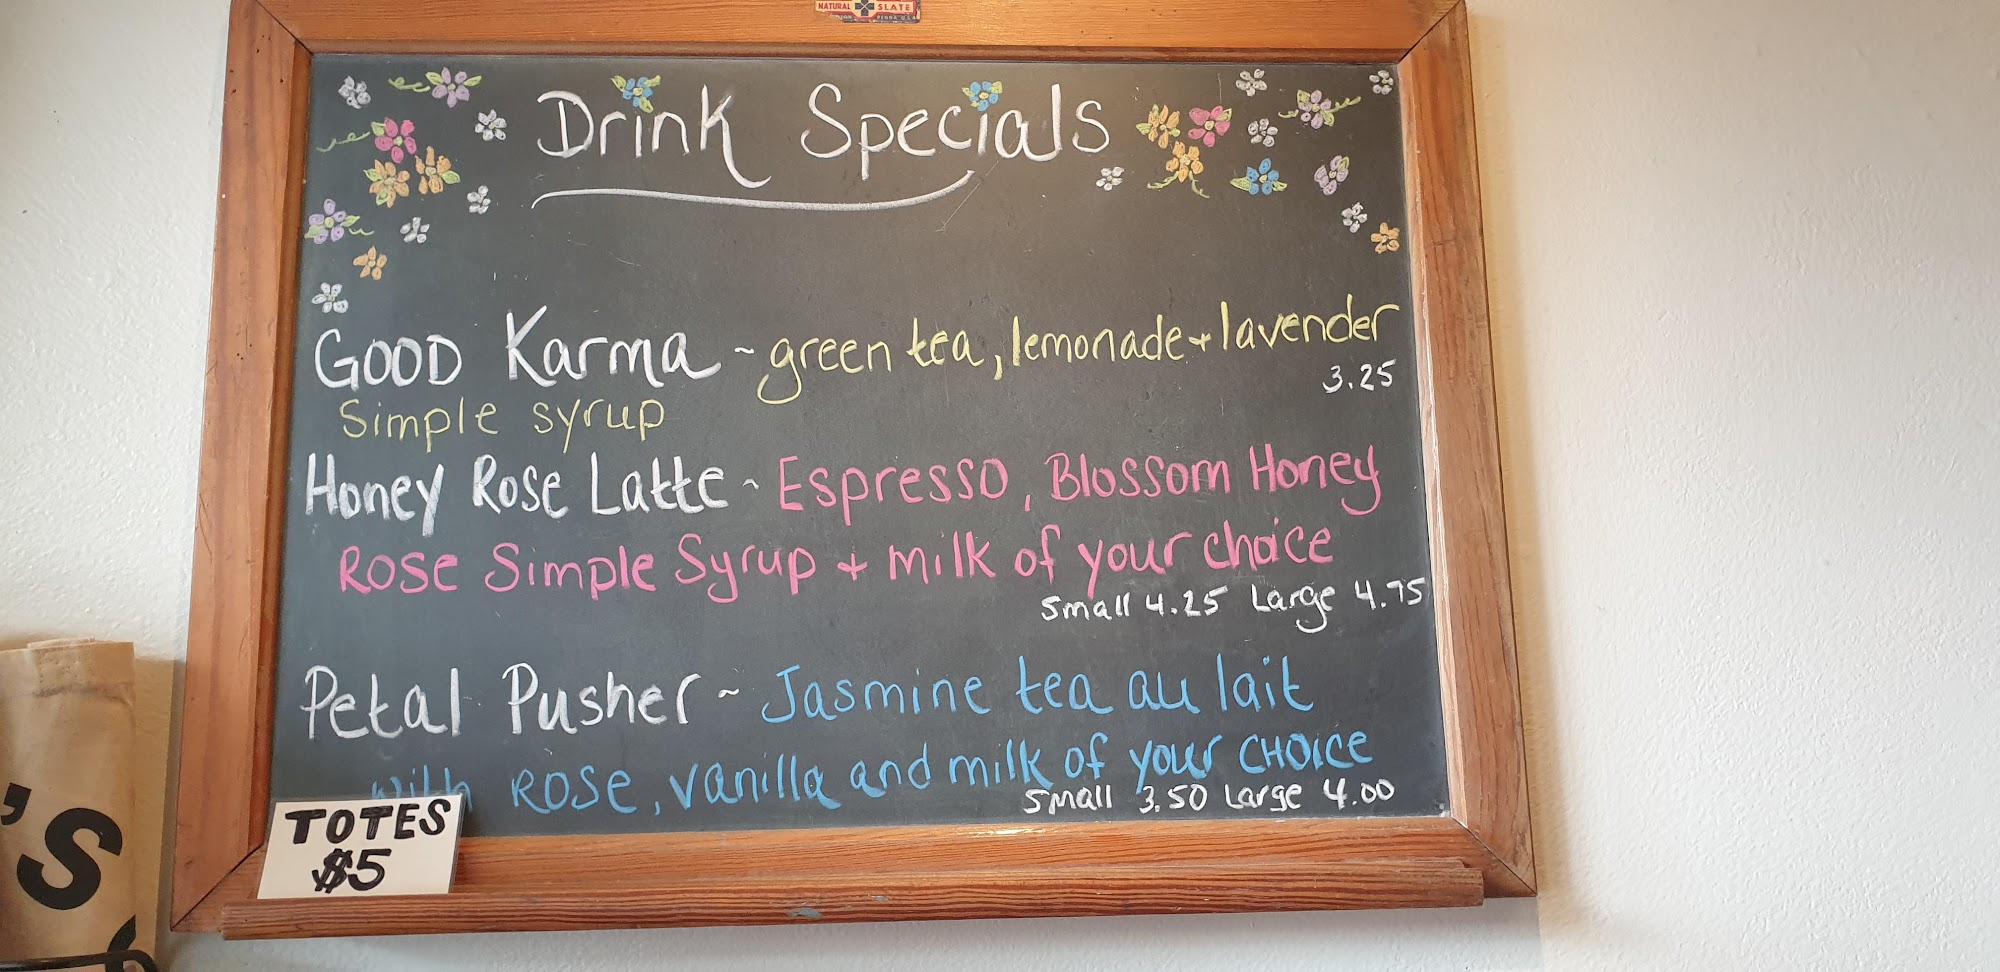 NATURAL SLATE
PENNA U.S.A
Drink Specials
GOOD Karma ~ green tea, lemonade + lavender
3.25
Simple syrup
Honey Rose Latte ~ Espresso, Blossom Honey
Rose Simple Syrup + milk of your choice
Small 4.25 Large 4.75
Petal Pusher ~ Jasmine tea au lait
with Rose, vanilla and milk of your CHOICE
Small 3.50 Large 4.00
TOTES
$5
'S